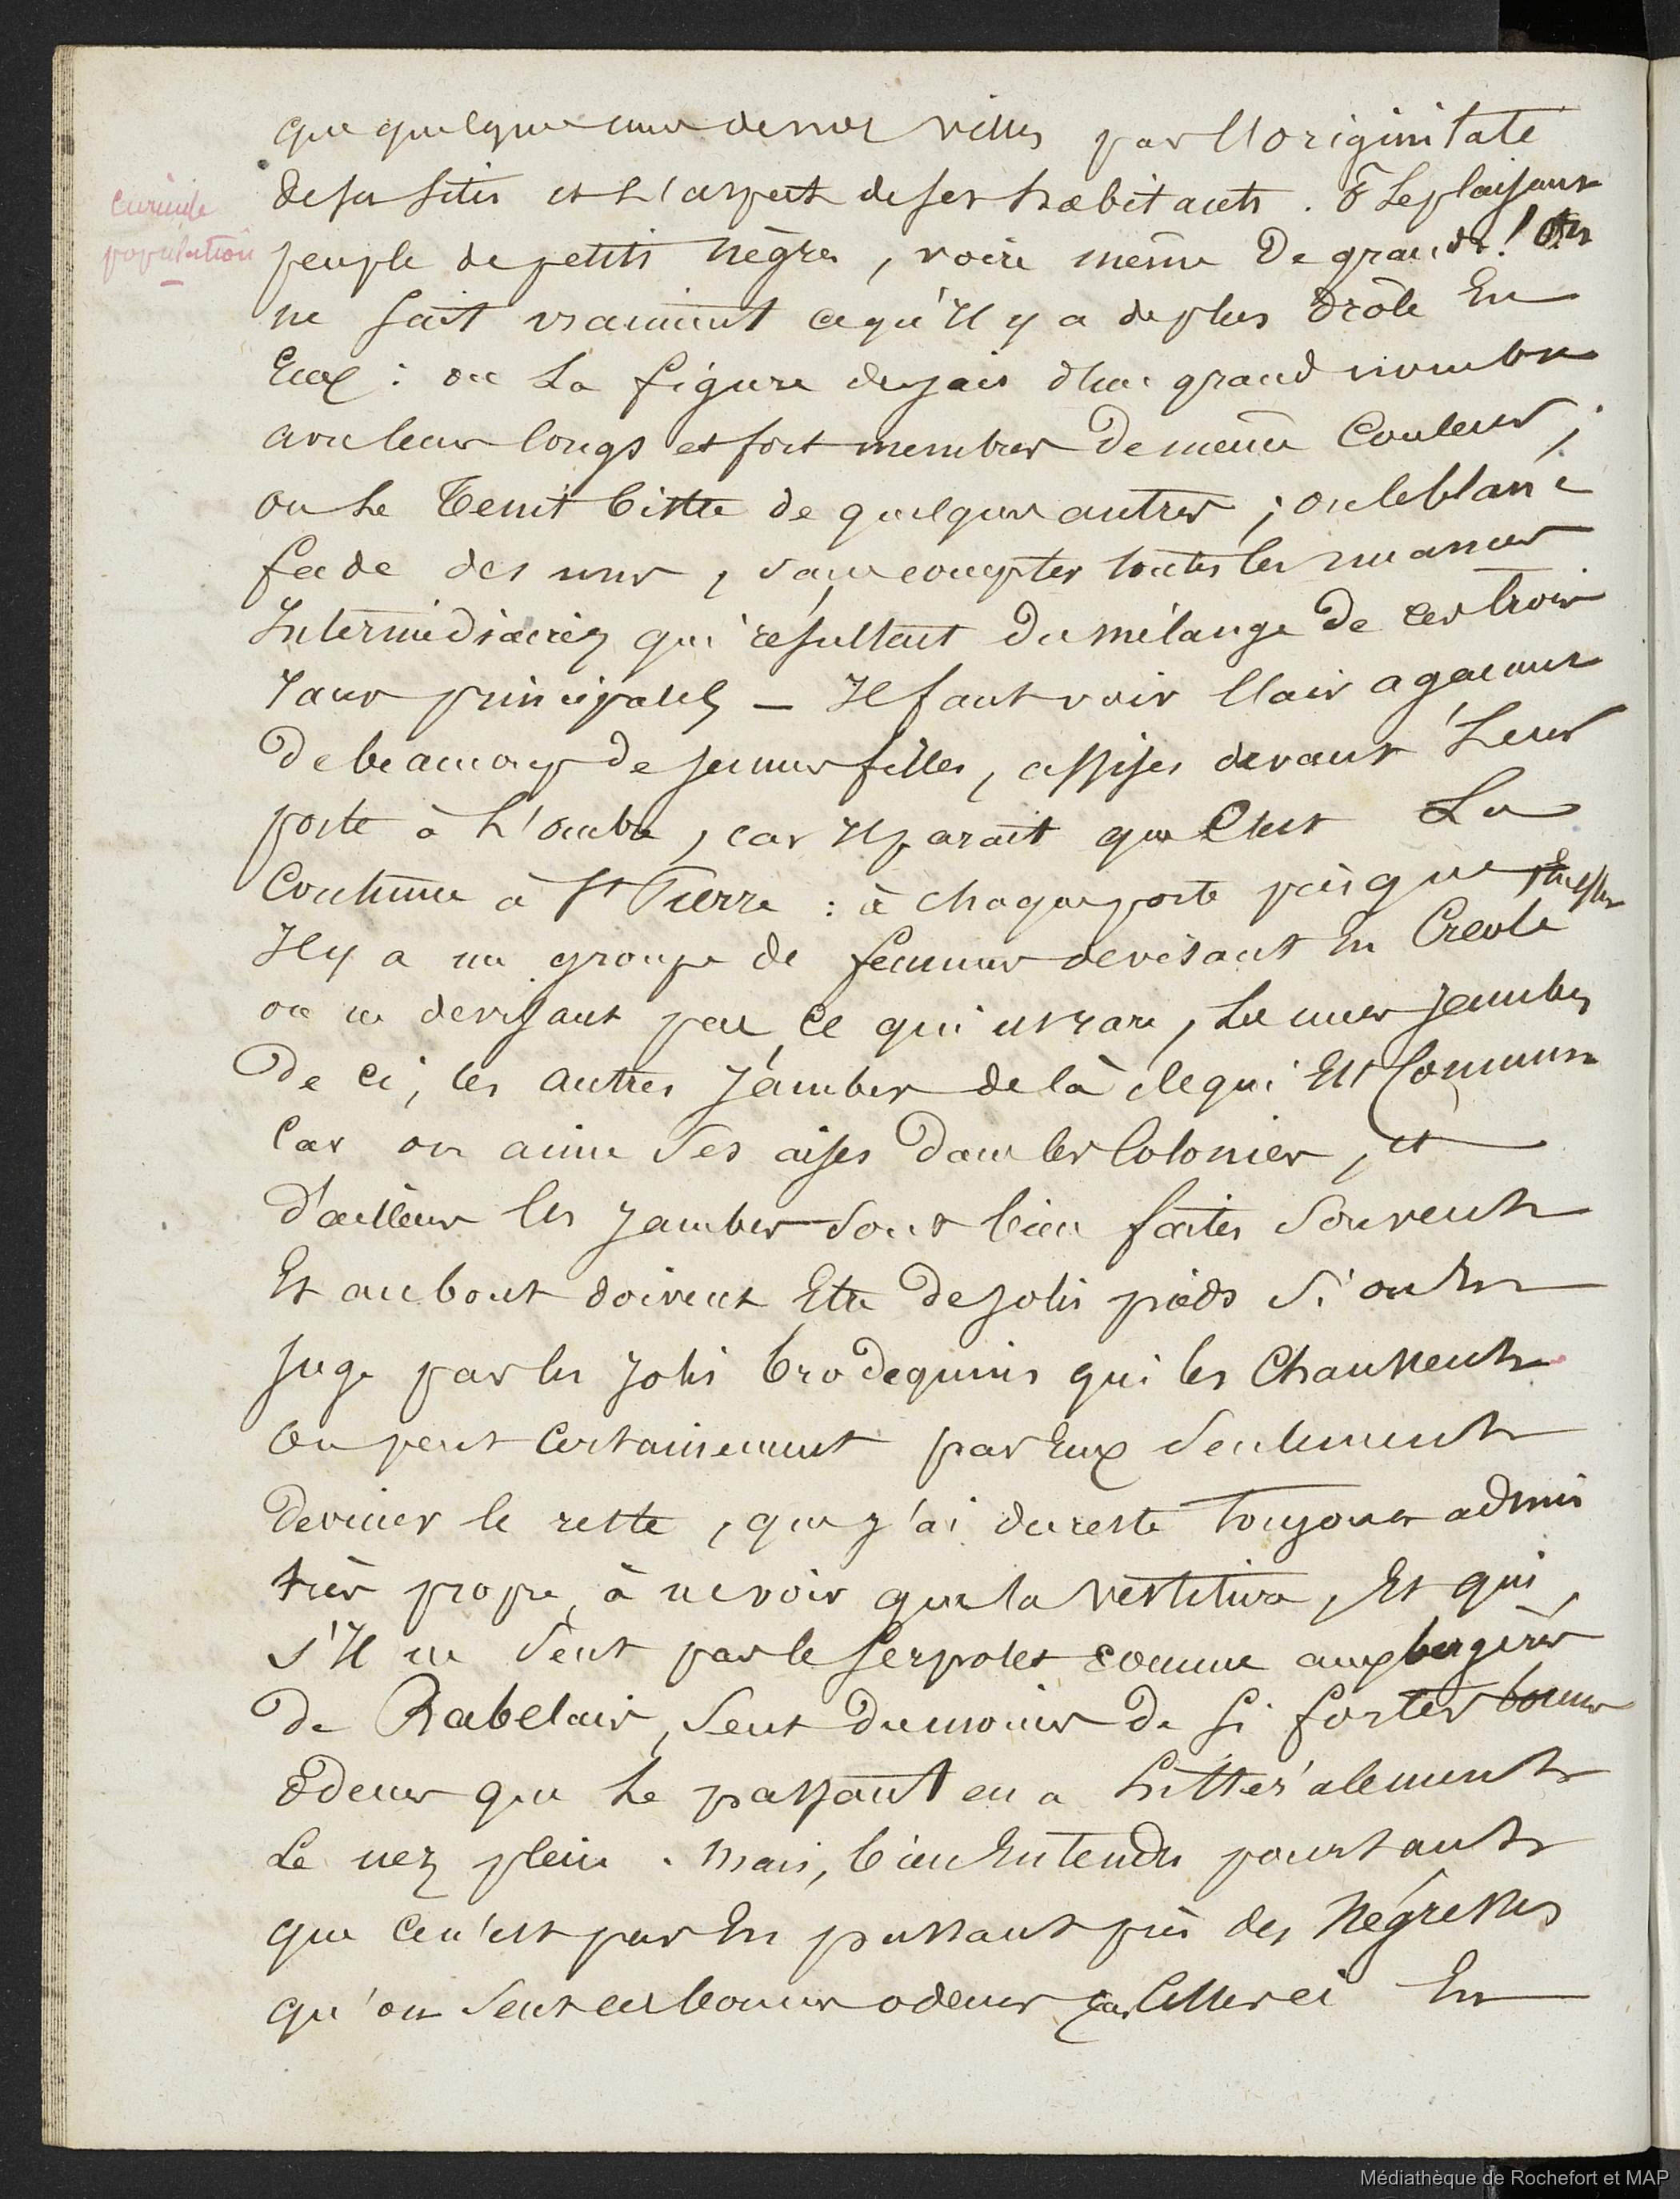 que quelques unes de nos villes par l'originitaté
de sa sites et l'aspect de ses habitants. ô Le plaisant
curieuse
population
peuple de petits nègres, voire même De grands! On
ne sait vraiment ce qu'Il y a de plus drôle En
Eux : ou La figure de jais d'un grand nombre
avec leurs longs et fort membres De même Couleur ;
ou Le Teint bistre de quelques autres ; ou le blanc
fade des uns, sans compter toutes les nuances
Intermédiaires qui résultent Du mélange De ces trois
races principales — Il faut voir l'air agaçant
De beaucoup De jeunes filles, assises devant Leur
porte à L'ombre, car Il parait que C'est La
Coutume à St Pierre : à chaque porte presque
Il y a un groupe de femmes devisant En Creole
ou ne devisant pas, ce qui est rare, Les unes jambes
De ci, les autres Jambes de là ce qui Est Commun
Car on aime Ses aises Dans les Colonies, et
d'ailleurs les Jambes Sont bien faites Souvent
Et au bout doivent Etre De jolis pieds Si on En
juge par les Jolis brodequins qui les Chaussent
On peut Certainement par Eux Seulement
Deviner le reste, que J'ai du reste Toujours admis
très propre, à ne voir que la vestiture, Et qui
s'Il ne Sent pas le serpolet comme aux bergères
De Rabelais, Sent du moins De si fortes bonnes
Odeurs que Le passant en a Littéralement
Le nez plein. Mais, bien Entendu pourtant
que ce n'est pas En passant près des Négresses
qu'on Sent ces bonnes odeurs car Celles ci En
Médiathèque de Rochefort et MAP